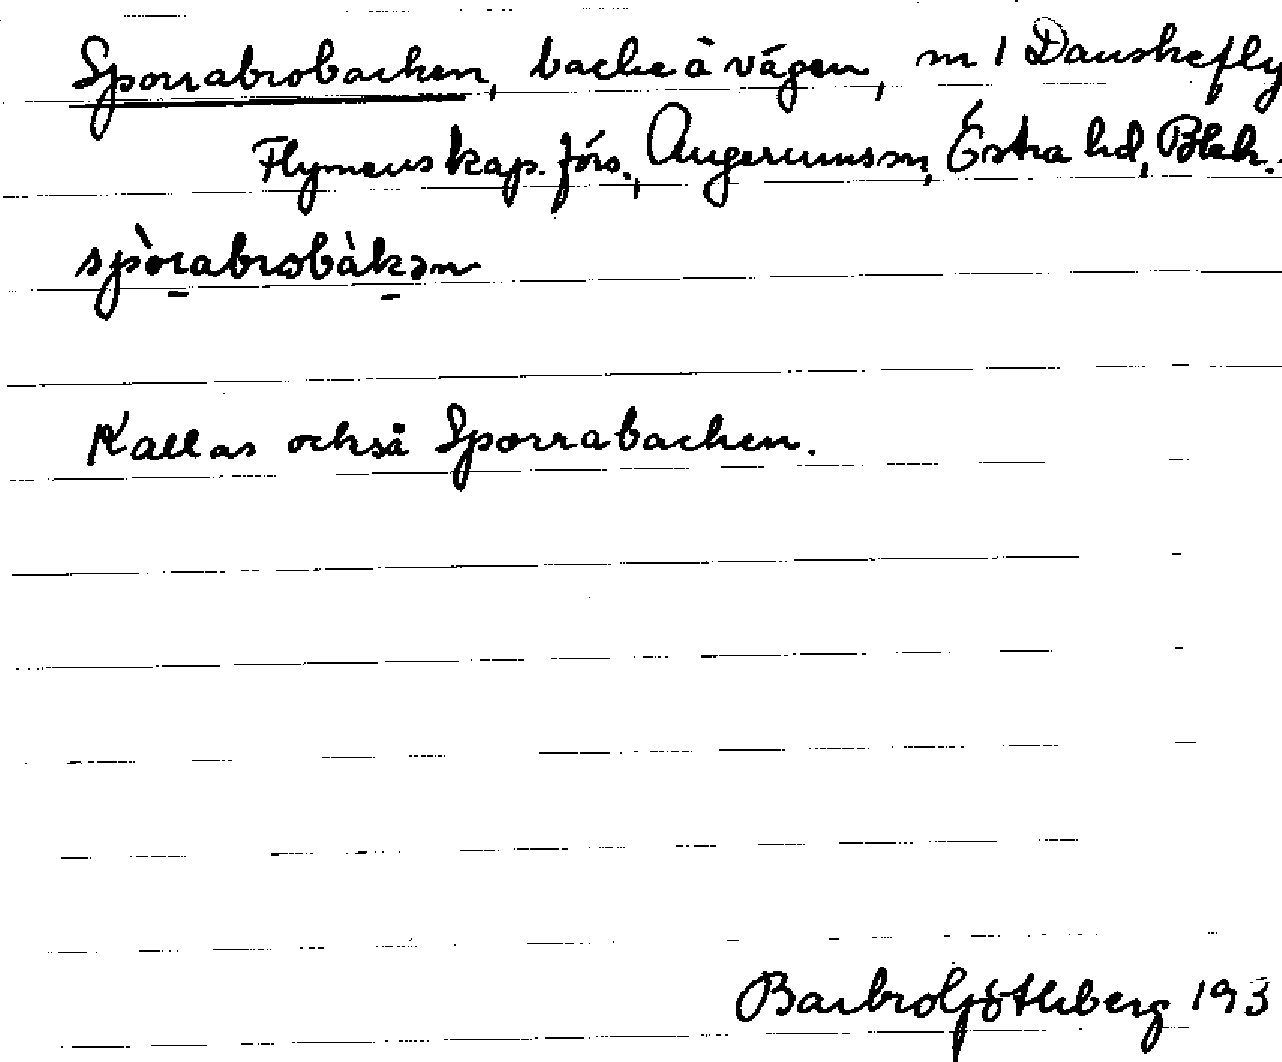 Sporrabrobacken, backe å vägen, m 1 Danskefly
Flymens kap. förs., Augerumssn, Östra hd, Blek.
spòrabrobàkən
Kallas också Sporrabacken.
Barbro Götleberg 193